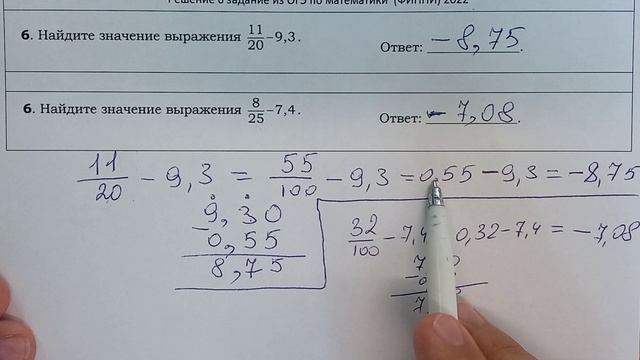 Решение 6 задание из ОГЭ по математике (ФИПИ) 2022
6. Найдите значение выражения 11/20 –9,3. Ответ: –8,75.
6. Найдите значение выражения 8/25 –7,4. Ответ: –7,08.
11/20 – 9,3 = 55/100 – 9,3 = 0,55 – 9,3 = –8,75
9,30
– 0,55
8,75
32/100 – 7,4 0,32–7,4 = –7,08